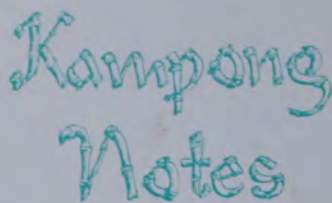 Kampong
Notes